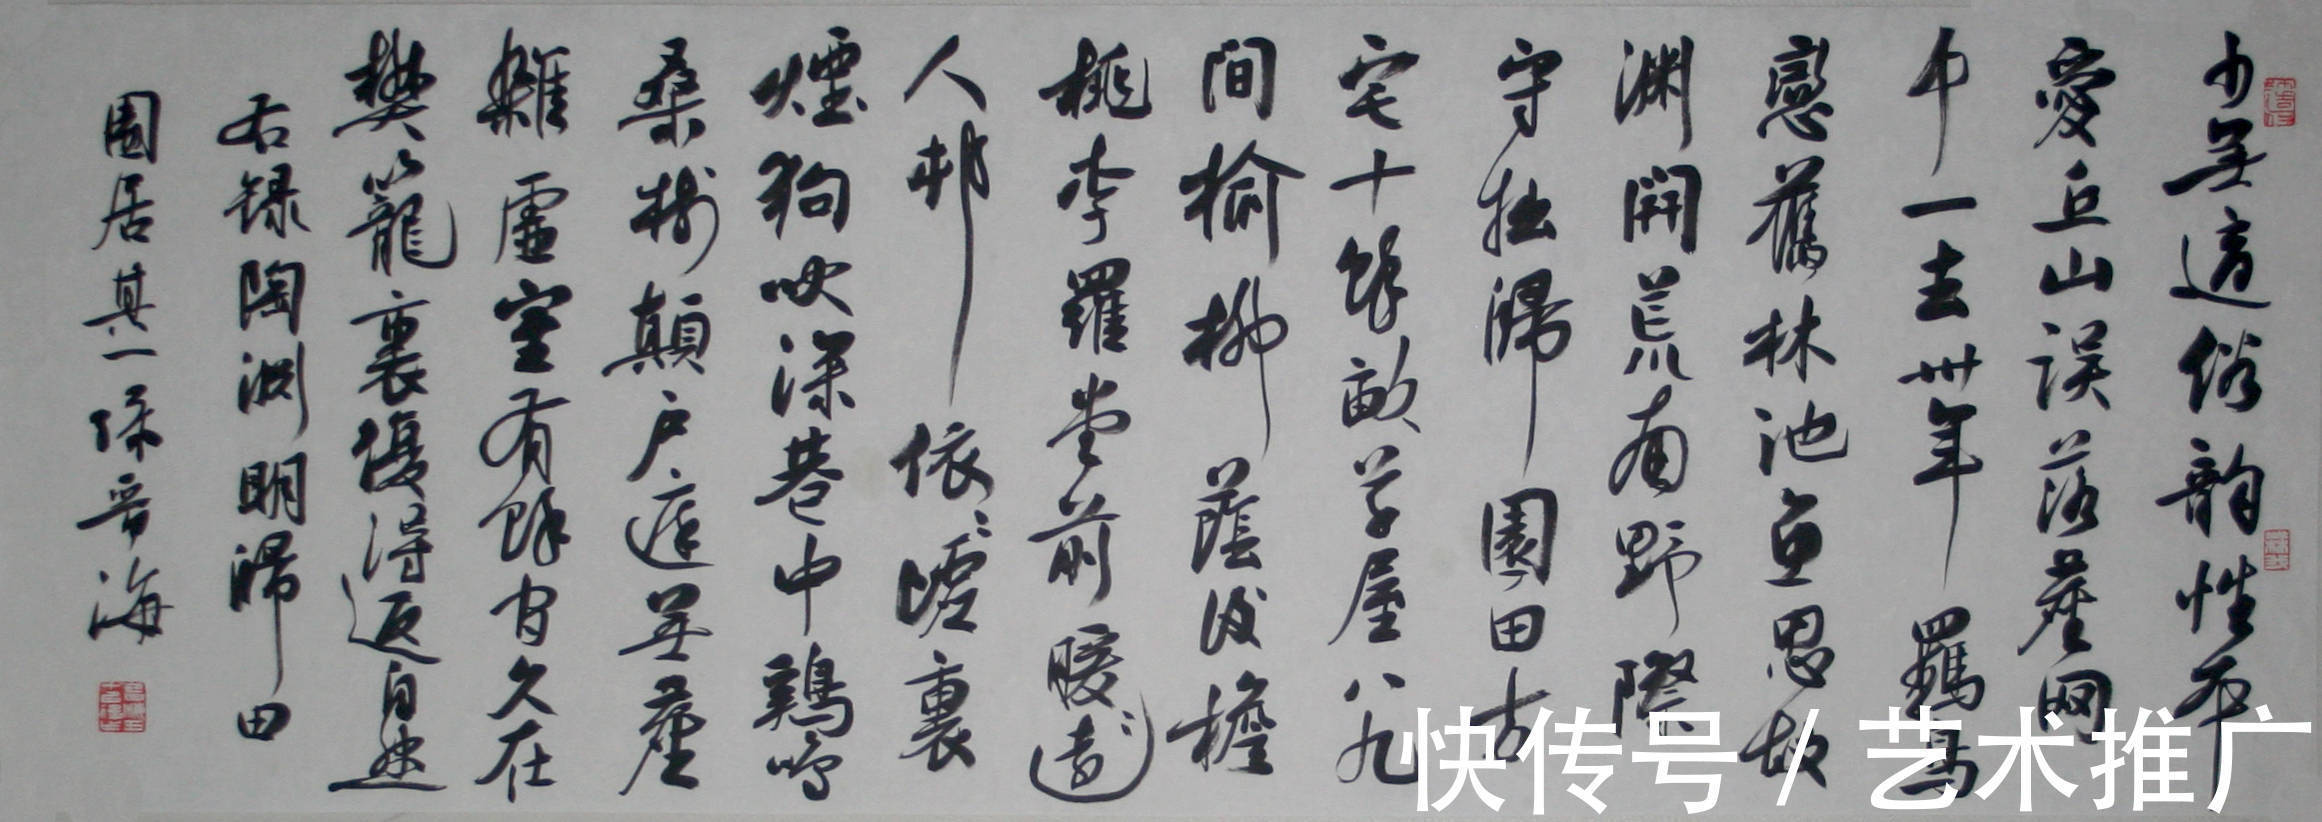 少無適俗韻性本
愛丘山误落塵网
中一去卅年羈鳥
戀舊林池魚思故
渊開荒南野際
守拙歸園田方
宅十餘畝草屋八九
間榆柳蔭後檐
桃李羅堂前暖〻遠
人邨依〻墟裏
煙狗吠深巷中鷄鳴
桑樹顛户庭無塵
雜虛室有餘閒久在
樊籠裏復得返自然
右録陶渊明歸田
園居其一孫晋海
快传号/艺术推广